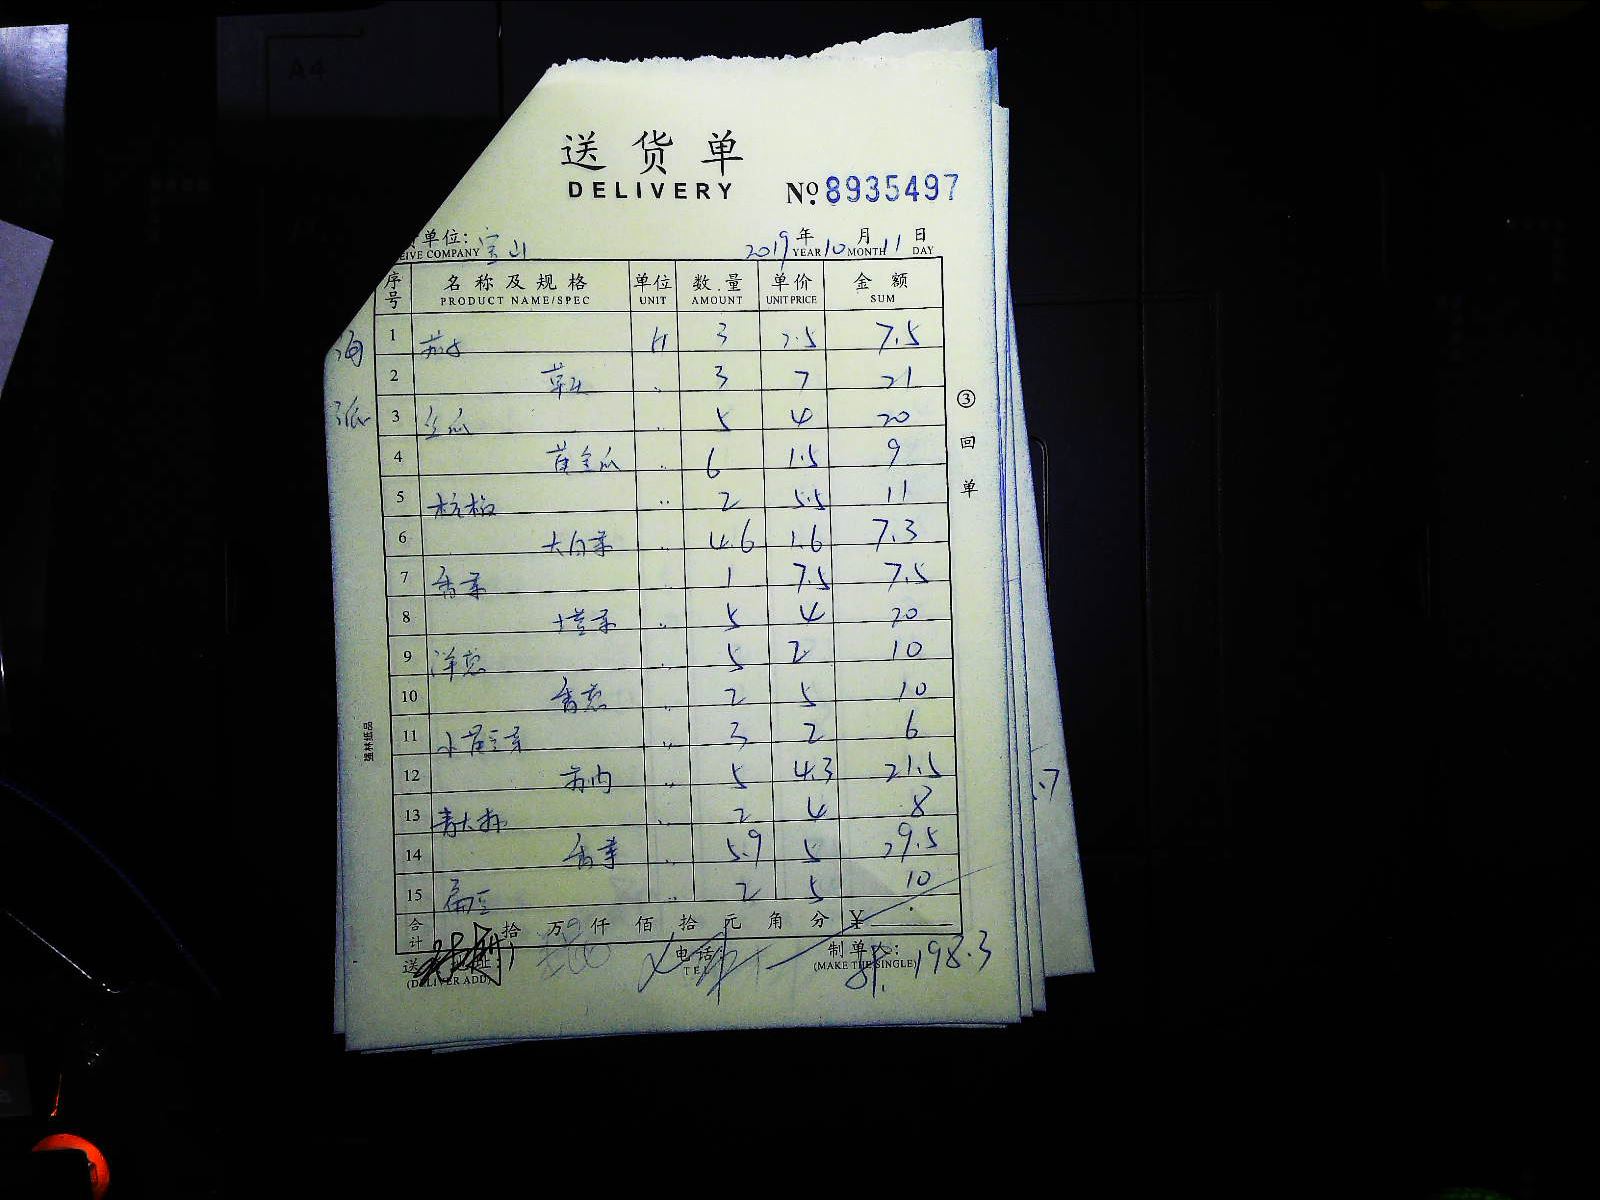 A4
送货单
DELIVERY
№ 8935497
单位: 宝山
EIVE COMPANY
2019年10月11日
YEAR MONTH DAY
序号 名称及规格 单位 数量 单价 金额
PRODUCT NAME/SPEC UNIT AMOUNT UNIT PRICE SUM
1 茄子 斤 3 2.5 7.5
2 草头 〃 3 7 21
3 丝瓜 〃 5 4 20
4 黄金瓜 〃 6 1.5 9
5 杭椒 〃 2 5.5 11
6 大白菜 〃 4.6 1.6 7.3
7 香菜 〃 1 7.5 7.5
8 塔菜 〃 5 4 20
9 洋葱 〃 5 2 10
10 香葱 〃 2 5 10
11 小黄豆芽 〃 3 2 6
12 〃 5 4.3 21.5
13 青大椒 〃 2 4 8
14 香 〃 5.9 5 29.5
15 扁豆 〃 2 5 10
合计 拾 万 仟 佰 拾 元 角 分 ¥
送 址: 电话: 制单人: 198.3
(DELIVER ADD) TEL (MAKE THE SINGLE)
③回单
强林纸品
.7